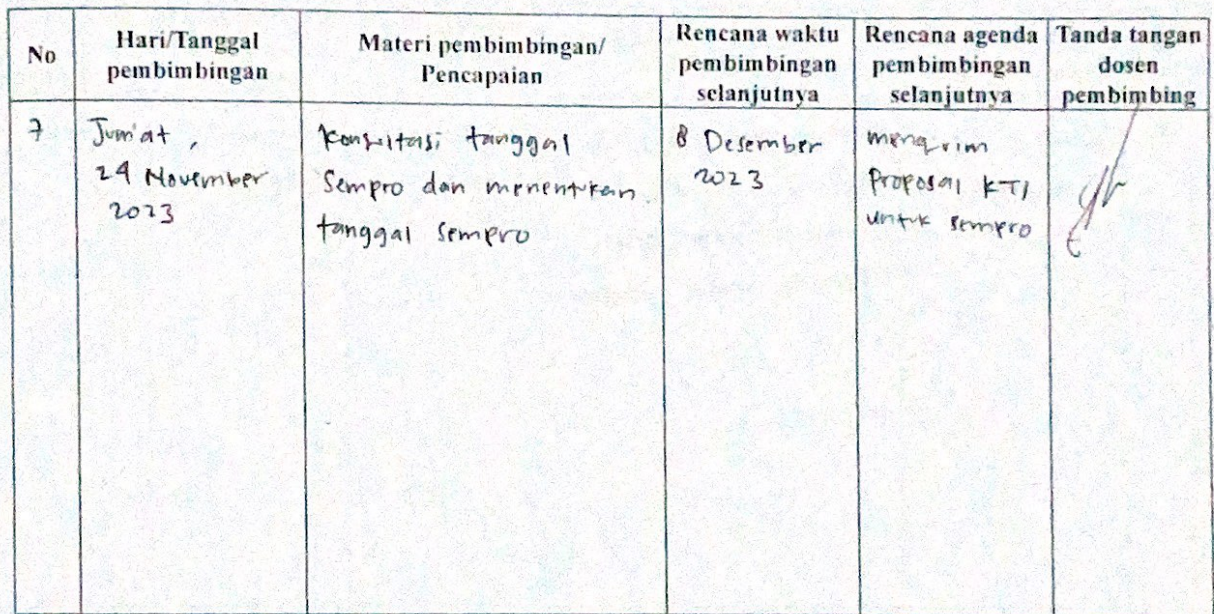 No
Hari/Tanggal
pembimbingan
Materi pembimbingan/
Pencapaian
Rencana waktu
pembimbingan
selanjutnya
Rencana agenda
pembimbingan
selanjutnya
Tanda tangan
dosen
pembimbing
7
Jum'at,
24 November
2023
Konsultasi tanggal
Sempro dan menentukan
tanggal Sempro
8 Desember
2023
mengirim
Proposal KTI
untuk sempro